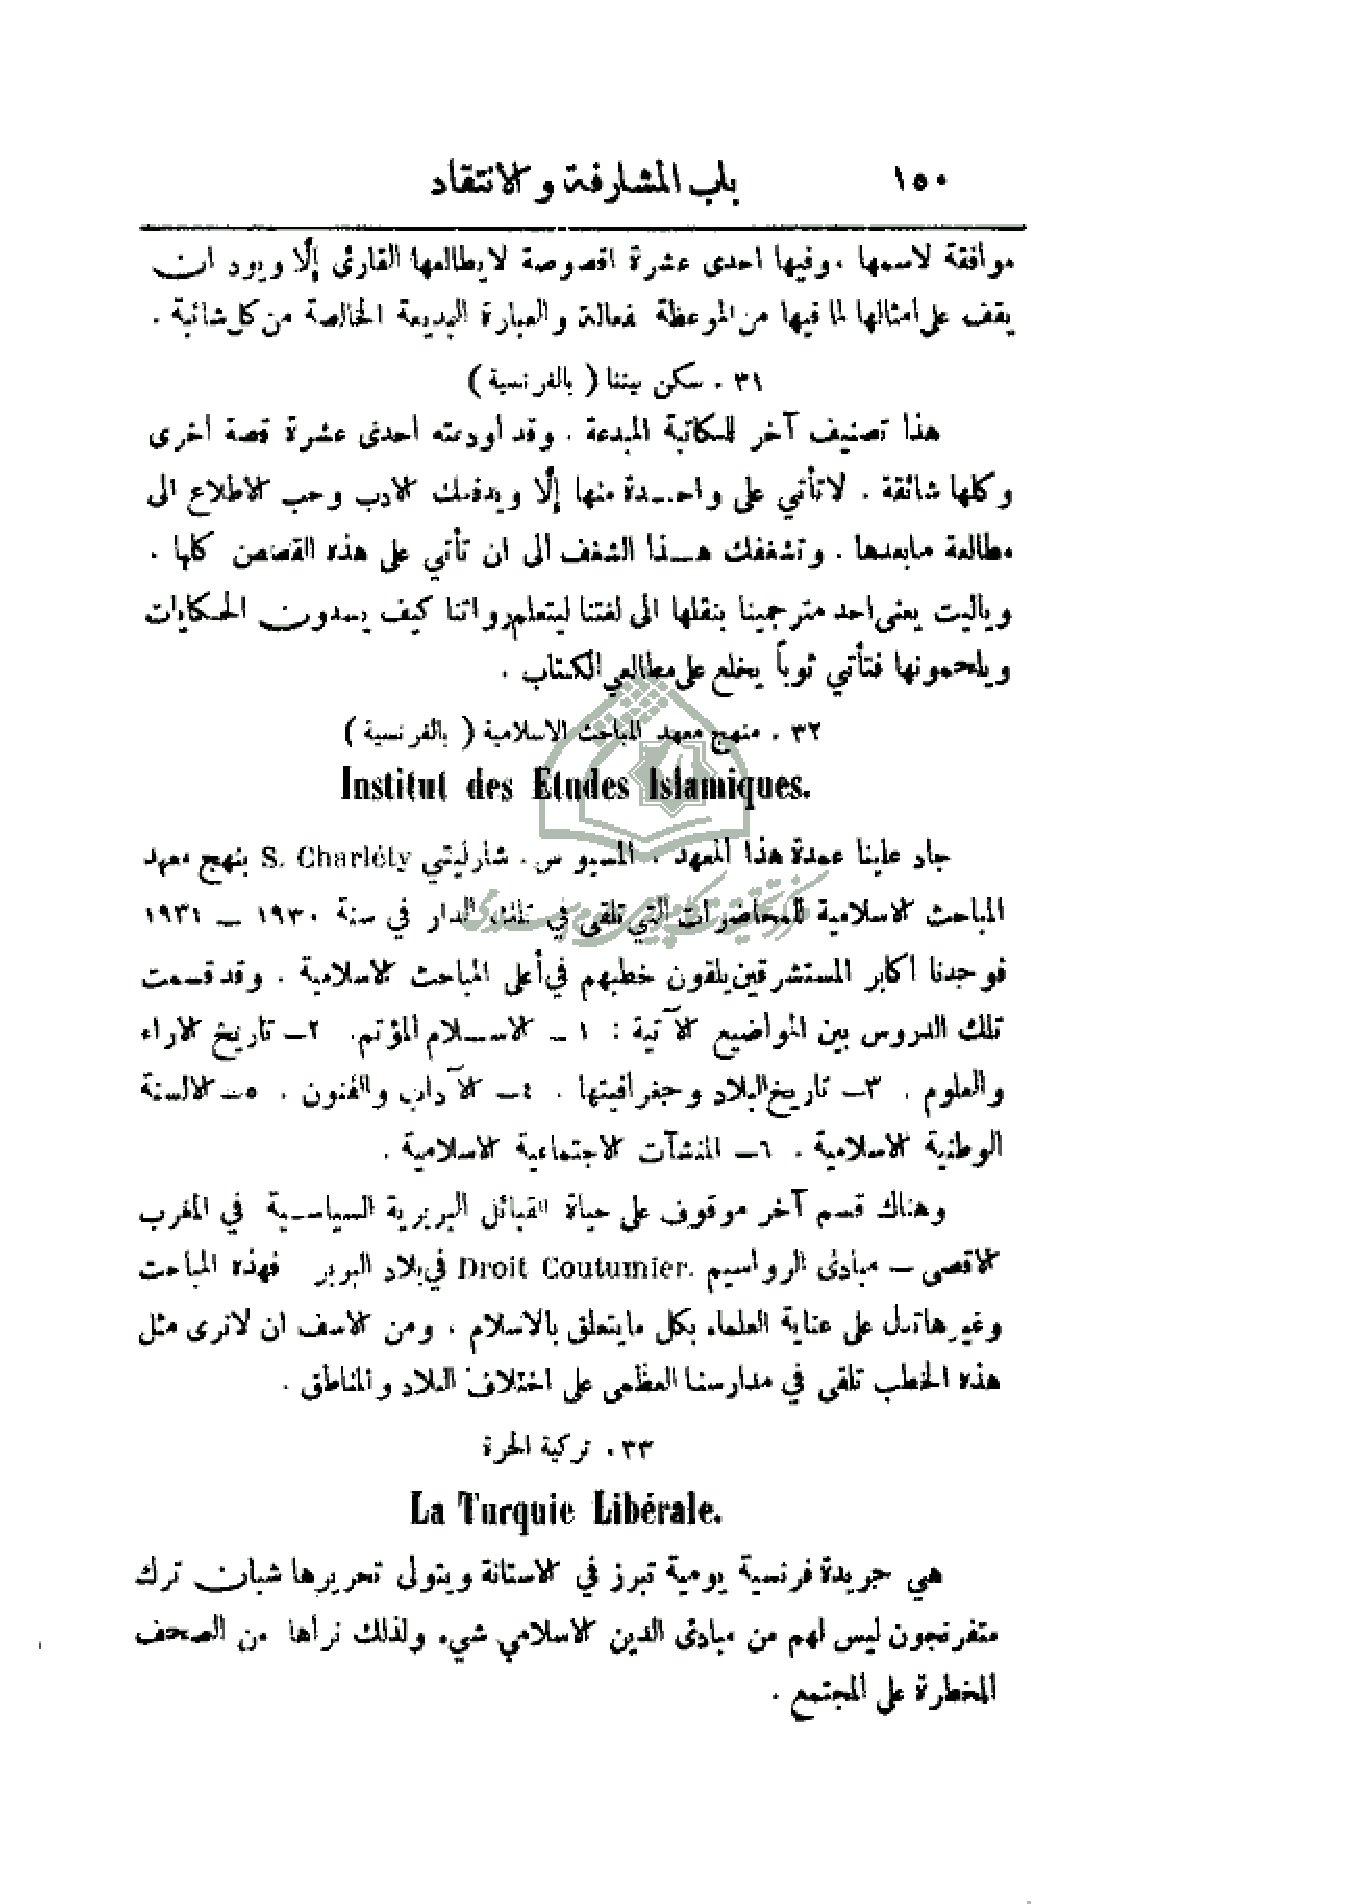 ١٥٠ باب المشارفة والانتقاد
موافقة لاسمها . وفيها احدى عشرة اقصوصة لا يطالعها القارئ إلّا ويود ان
يقف على امثالها لما فيها من الموعظة فعالة والعبارة البديعة الخالصة من كل شائبة .
٣١ . سكن بيتنا ( بالفرنسية )
هذا تصنيف آخر للكاتبة المبدعة . وقد أودعته احدى عشرة قصة اخرى
وكلها شائقة . لا تأتي على واحدة منها إلّا ويدفعك الادب وحب الاطلاع الى
مطالعة ما بعدها . وتشغفك هذا الشغف الى ان تأتي على هذه القصص كلها .
وياليت يعنى احد مترجمينا بنقلها الى لغتنا ليتعلم رواتنا كيف يسدون الحكايات
ويلحمونها فتأتي ثوباً يخلع على مطالعي الكتاب .
٣٢ . منهج معهد المباحث الاسلامية ( بالفرنسية )
Institut des Etudes Islamiques.
جاد علينا عمدة هذا المعهد ، المسيو س. شارليتي S. Charléty بنهج معهد
المباحث الاسلامية للمحاضرات التي تلقى في تلك الدار في سنة ١٩٣٠ ــ ١٩٣١
فوجدنا اكابر المستشرقين يلقون خطبهم في أعلى المباحث الاسلامية . وقد قسمت
تلك الدروس بين المواضيع الآتية : ١ ــ الاسلام المؤتم. ٢ــ تاريخ الاراء
والعلوم . ٣ــ تاريخ البلاد وجغرافيتها . ٤ــ الآداب والفنون . ٥ــ الالسنة
الوطنية الاسلامية . ٦ــ المنشآت الاجتماعية الاسلامية .
وهناك قسم آخر موقوف على حياة القبائل البربرية السياسية في المغرب
الاقصى ــ مبادئ الرواسيم Droit Coutumier. في بلاد البربر فهذه المباحث
وغيرها تدل على عناية العلماء بكل ما يتعلق بالاسلام ، ومن الاسف ان لا نرى مثل
هذه الخطب تلقى في مدارسنا العظمى على اختلاف البلاد والمناطق .
٣٣ . تركية الحرة
La Turquie Libérale.
هي جريدة فرنسية يومية تبرز في الاستانة ويتولى تحريرها شبان ترك
متفرنجون ليس لهم من مبادئ الدين الاسلامي شيء ولذلك نراها من الصحف
المخطرة على المجتمع .